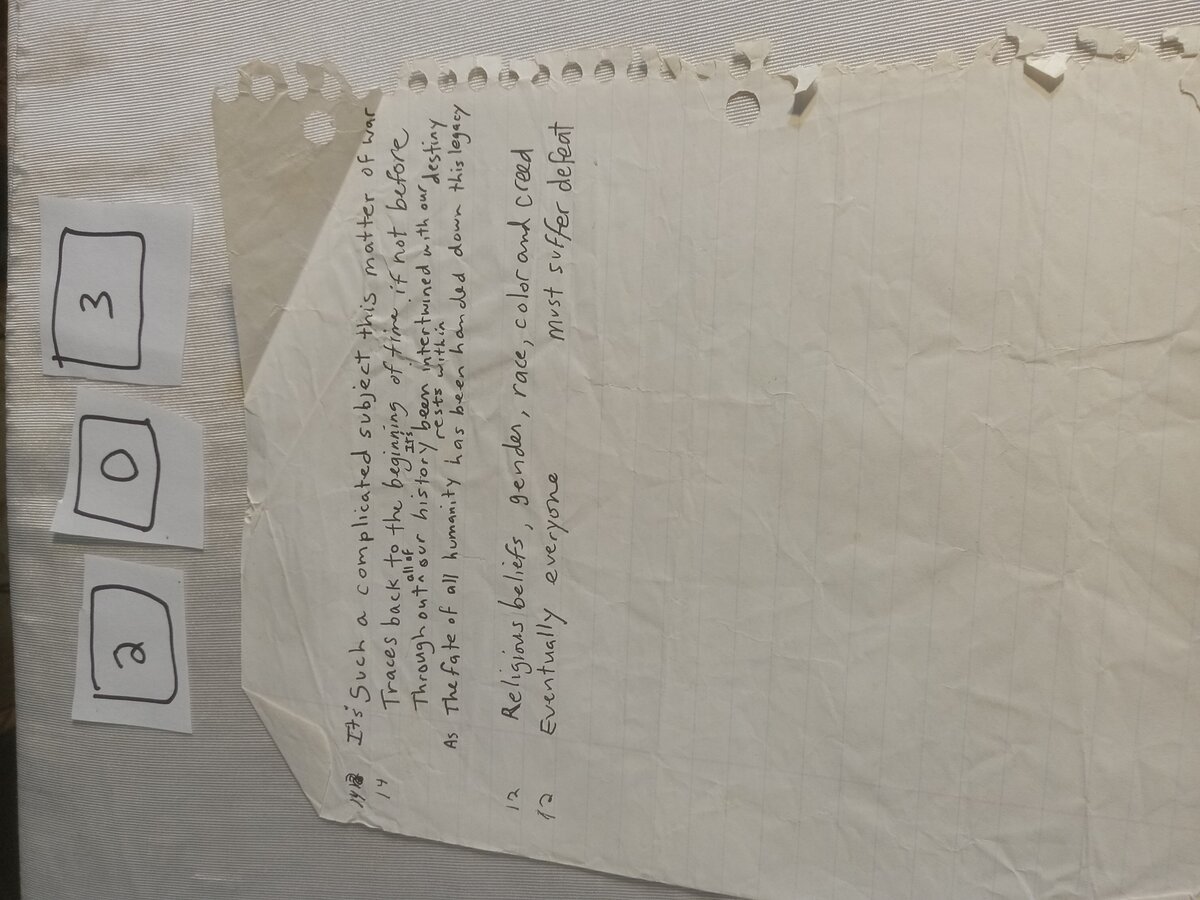 2 0 3
14 It's Such a complicated subject this matter of war
14 Traces back to the beginning of time if not before
Throughout all of our history Its been intertwined with our destiny
rests within
As The fate of all humanity has been handed down this legacy
12 Religious beliefs, gender, race, color and creed
12 Eventually everyone must suffer defeat